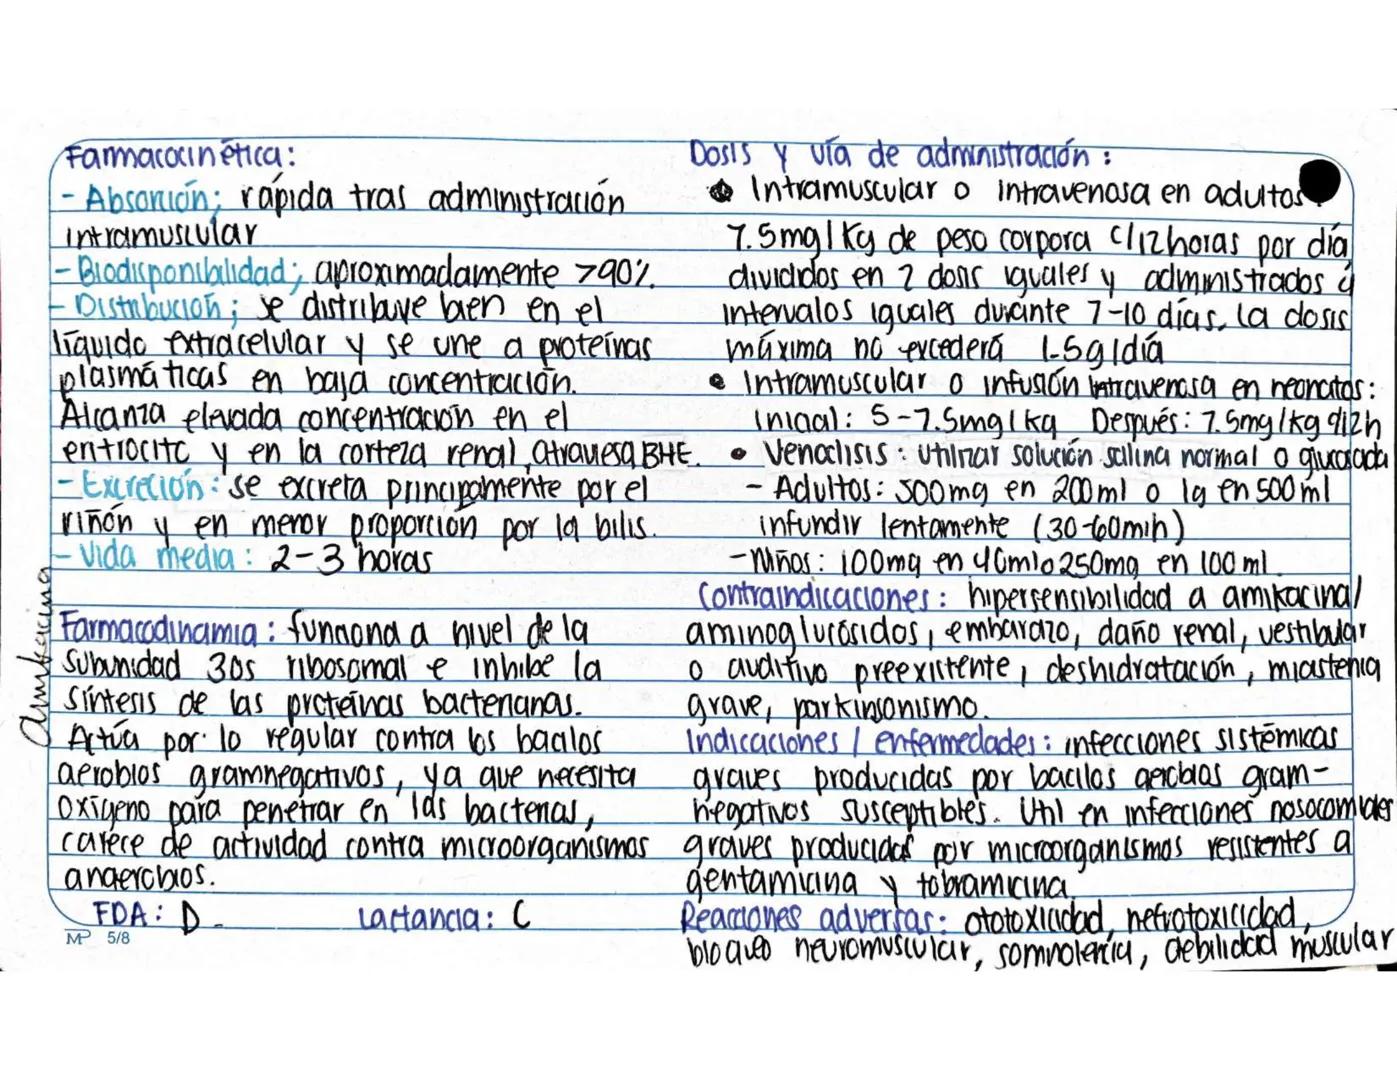 Farmacocinética:
- Absorción; rápida tras administración
intramuscular
- Biodisponibilidad; aproximadamente >90%.
- Distribución; se distribuye bien en el
líquido extracelular y se une a proteínas
plasmáticas en baja concentración.
Alcanza elevada concentración en el
entrocito y en la corteza renal, atraviesa BHE.
- Excreción: se excreta principalmente por el
riñón y en menor proporción por la bilis.
- Vida media: 2-3 horas
Amikacina
Farmacodinamia: funciona a nivel de la
subunidad 30s ribosomal e inhibe la
síntesis de las proteínas bacterianas.
Actúa por lo regular contra los bacilos
aerobios gramnegativos, ya que necesita
oxígeno para penetrar en las bacterias,
carece de actividad contra microorganismos
anaerobios.
FDA: D - Lactancia: C
MP 5/8
Dosis y vía de administración:
• Intramuscular o intravenosa en adultos
7.5mg/kg de peso corpora c/12horas por día
divididos en 2 dosis iguales y administrados a
intervalos iguales durante 7-10 días. La dosis
máxima no excederá 1.5g/día
• Intramuscular o infusión intravenosa en neonatos:
Inicial: 5-7.5mg/kg Después: 7.5mg/kg c/12h
• Venoclisis: utilizar solución salina normal o glucosada
- Adultos: 500mg en 200ml o 1g en 500ml
infundir lentamente (30-60min)
- Niños: 100mg en 40ml o 250mg en 100ml.
Contraindicaciones: hipersensibilidad a amikacina/
aminoglucósidos, embarazo, daño renal, vestibular
o auditivo preexistente, deshidratación, miastenia
grave, parkinsonismo.
Indicaciones / enfermedades: infecciones sistémicas
graves producidas por bacilos aerobios gram-
negativos susceptibles. Util en infecciones nosocomiales
graves producidas por microorganismos resistentes a
gentamicina y tobramicina
Reacciones adversas: ototoxicidad, nefrotoxicidad,
bloqueo neuromuscular, somnolencia, debilidad muscular